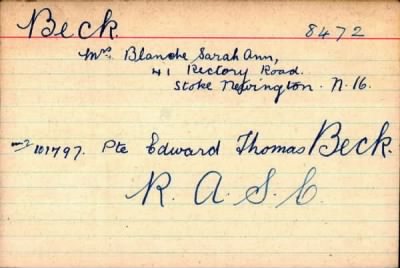 Beck. 8472
Mrs Blanche Sarah Ann,
41 Rectory Road.
Stoke Newington. N.16.
M2/101797. Pte Edward Thomas Beck.
R. A. S. C.